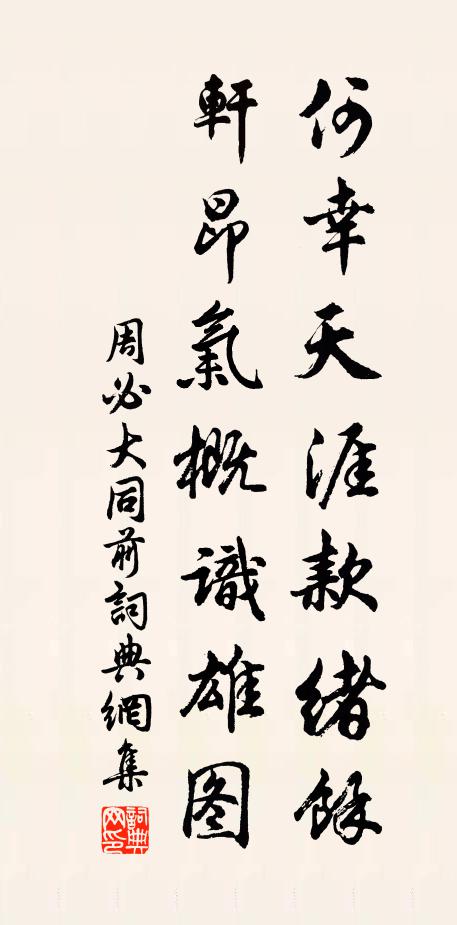 何幸天涯款緒餘
軒昂氣概識雄图
周必大同前詞典網集
詞典网印